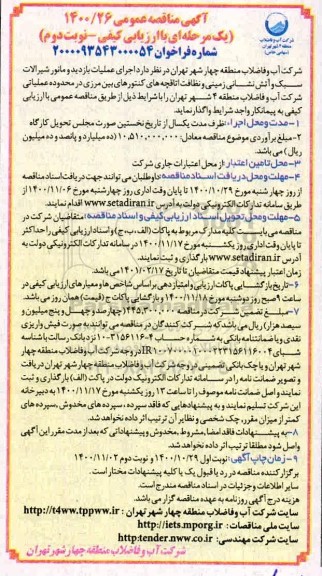 آگهی مناقصه عمومی ۱۴۰۰/۲۶
(یک مرحله ای با ارزیابی کیفی - نوبت دوم)
شماره فراخوان ۲۰۰۰۰۹۳۵۴۳۰۰۰۰۵۴
شرکت آب و فاضلاب
منطقه ۴ شهر تهران
(سهامی خاص)
شرکت آب و فاضلاب منطقه چهار شهر تهران در نظر دارد اجرای عملیات بازدید و مانور شیرآلات
سبک و آتش نشانی زمینی و نظافت اتاقچه های کنتورهای بین مرزی در محدوده عملیاتی
شرکت آب و فاضلاب منطقه ۴ شهر تهران را با شرایط ذیل از طریق مناقصه عمومی با ارزیابی
کیفی به پیمانکار واجد شرایط واگذار نماید.
۱- مدت و محل اجرا: ظرف مدت یکسال از تاریخ نخستین صورت مجلس تحویل کارگاه
۲- مبلغ برآوردی موضوع مناقصه معادل: ۱۰,۵۱۰,۰۰۰,۰۰۰ (ده میلیارد و پانصد و ده میلیون
ریال) می باشد.
۳- محل تامین اعتبار: از محل اعتبارات جاری شرکت
۴- مهلت و محل دریافت اسناد مناقصه: داوطلبان می توانند جهت دریافت اسناد مناقصه
از روز چهار شنبه مورخ ۱۴۰۰/۱۰/۲۹ تا پایان وقت اداری روز چهارشنبه مورخ ۱۴۰۰/۱۱/۰۶ از
طریق سامانه تدارکات الکترونیکی دولت به آدرس www.setadiran.ir اقدام نمایند.
۵- مهلت و محل تحویل اسناد ارزیابی کیفی و اسناد مناقصه: متقاضیان شرکت در
مناقصه می بایست کلیه مدارک مربوط به پاکات (الف، ب، ج) و اسناد ارزیابی کیفی را حداکثر
تا پایان وقت اداری روز یکشنبه مورخ ۱۴۰۰/۱۱/۱۷ در سامانه تدارکات الکترونیکی دولت به
آدرس www.setadiran.ir بارگذاری و ثبت نمایند.
زمان اعتبار پیشنهاد قیمت متقاضیان تا تاریخ ۱۴۰۱/۰۲/۱۷ می باشد.
۶- تاریخ بازگشایی پاکات: ارزیابی و امتیازدهی بر اساس شاخص ها و معیارهای ارزیابی کیفی در
ساعت ۹ صبح روز دوشنبه مورخ ۱۴۰۰/۱۱/۱۸ و بازگشایی پاکات ج (قیمت) همان روز می باشد.
۷- مبلغ تضمین شرکت در مناقصه: ۴۴۵,۳۰۰,۰۰۰ (چهارصد و چهل و پنج میلیون و
سیصد هزار) ریال می باشد که شرکت کنندگان در مناقصه می توانند به صورت فیش واریزی
نقدی و یا ضمانتنامه بانکی به شماره حساب
در وجه شرکت آب و فاضلاب منطقه چهار
شهر تهران و یا چک بانکی تضمینی در وجه شرکت آب و فاضلاب منطقه چهار شهر تهران دریافت
و تصویر ضمانت نامه را در سامانه تدارکات الکترونیک دولت در پاکت (الف) بارگذاری و ثبت
نمایند و اصل ضمانت نامه موصوف را تا ساعت ۱۳ روز یکشنبه مورخ ۱۴۰۰/۱۱/۱۷ به دبیرخانه
این شرکت تسلیم نمایند و به پیشنهادهایی که فاقد سپرده، سپرده های مخدوش، سپرده های
کمتر از میزان مقرر، چک شخصی و نظایر آن ترتیب اثر داده نخواهد شد.
۸- به پیشنهادات فاقد امضا، مشروط، مخدوش و پیشنهاداتی که بعد از مدت مقرر این آگهی
واصل شود مطلقا ترتیب اثر داده نخواهد شد.
۹- زمان چاپ آگهی: نوبت اول ۱۴۰۰/۱۰/۲۹ و نوبت دوم ۱۴۰۰/۱۱/۰۲
برگزار کننده مناقصه در رد یا قبول یک یا کلیه پیشنهادات مختار است.
سایر اطلاعات و جزئیات در اسناد مناقصه مندرج است.
هزینه درج آگهی روزنامه به عهده مناقصه گزار می باشد.
سایت شرکت آب و فاضلاب منطقه چهار شهر تهران : http://t4ww.tppww.ir
سایت ملی مناقصات: http://iets.mporg.ir
سایت شرکت مهندسی: http:tender.nww.co.ir
شرکت آب و فاضلاب منطقه چهار شهر تهران